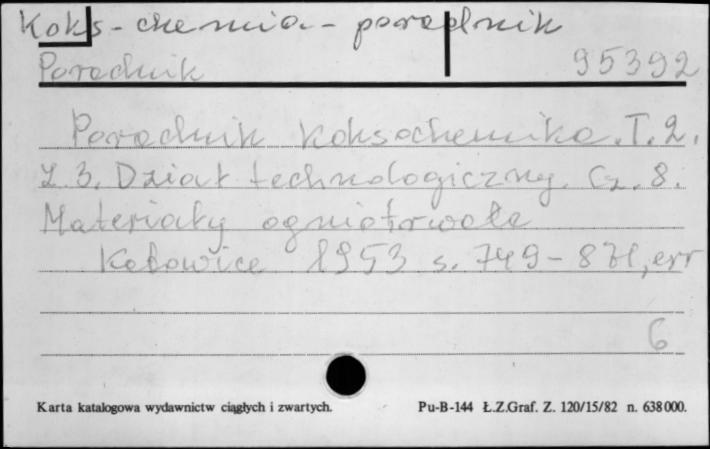 Koks - chemia - poradnik
Poradnik 95392
Poradnik koksochemika. T. 2.
Z. 3. Dział technologiczny. Cz. 8.
Materiały ogniotrwałe
Katowice 1953 s. 749-871, err
6
Karta katalogowa wydawnictw ciągłych i zwartych. Pu-B-144 Ł.Z.Graf. Z. 120/15/82 n. 638000.